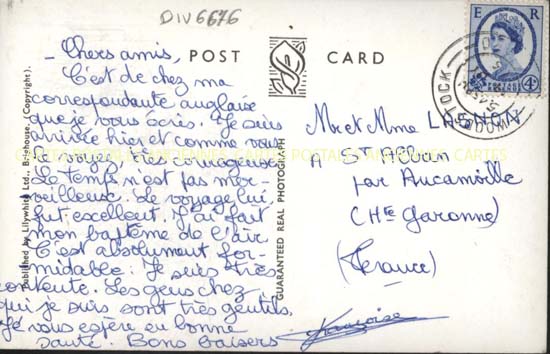 DIV6676
Published by Lilywhite Ltd., Brighouse. (Copyright).
POST CARD
GUARANTEED REAL PHOTOGRAPH
E R
POSTAGE
4D
- Chers amis,
C'est de chez ma
correspondante anglaise
que je vous écris. Je suis
arrivée hier et comme vous
le voyez, très courageuse
Le temps n'est pas mer-
veilleux. Le voyage lui,
fut excellent. J'ai fait
mon baptème de l'air
C'est absolument for-
midable. Je suis très
contente. Les gens chez
qui je suis sont très gentils.
Je vous espère en bonne
santé. Bons baisers
Françoise
Mr et Mme LASNON
A ST Alban
par Aucamville
(Hte Garonne)
(France)
CARTES POSTALES ANCIENNES CARTES POSTALES ANCIENNES CARTES